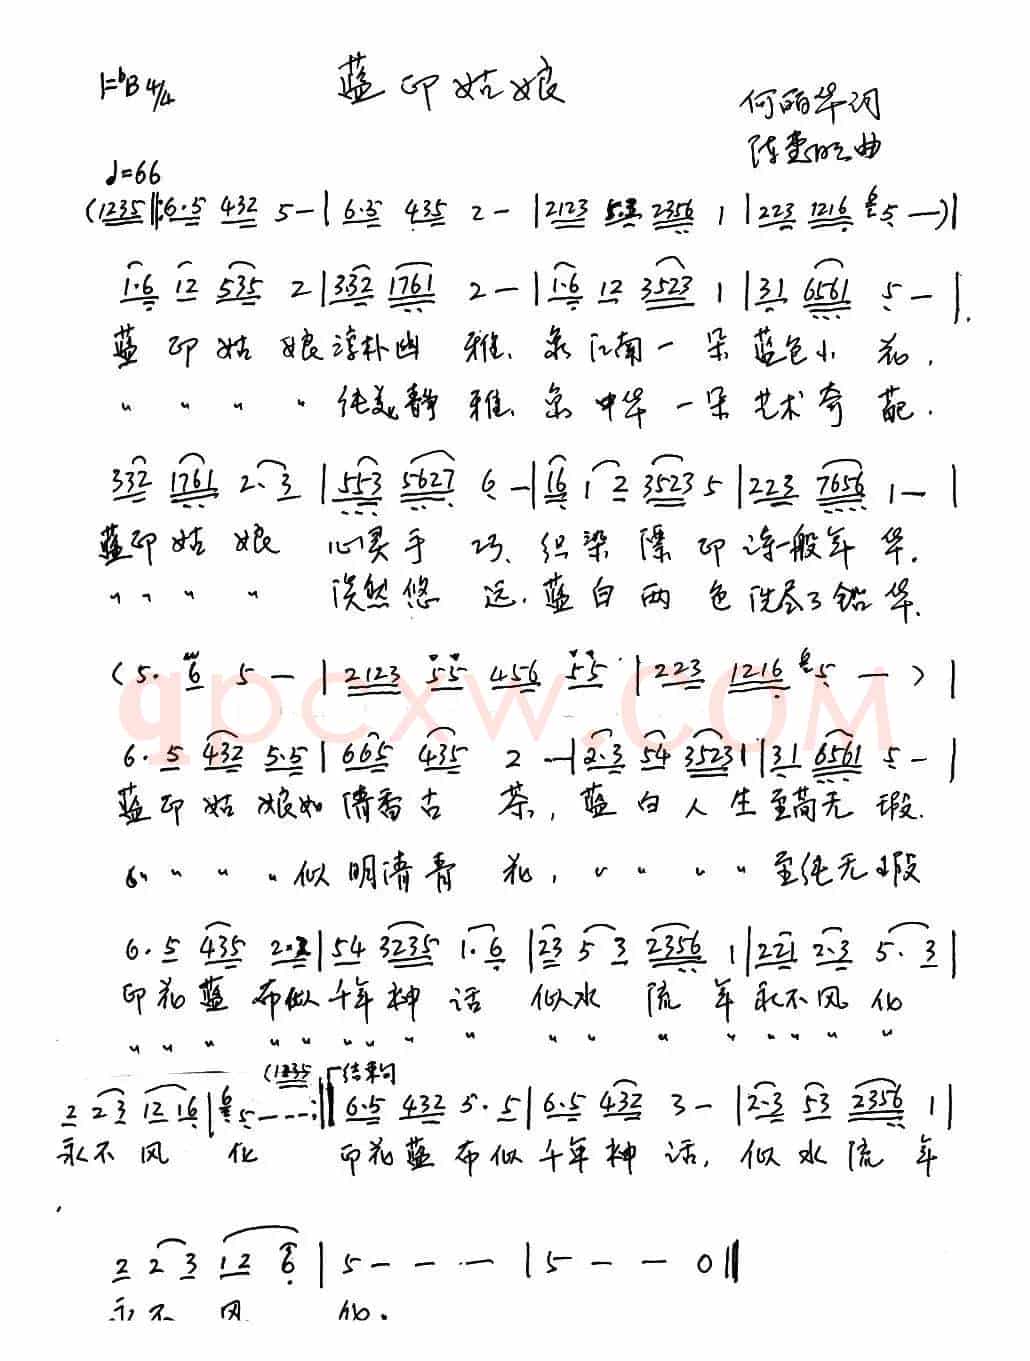 1=ᵇB 4/4 蓝印姑娘
何丽华词
曲
♩=66
(1235‖:6·5 432 5—|6·5 435 2—|2123 5·3 2356 1|223 1216 6 5—)|
1·6 12 535 2|332 1761 2—|1·6 12 3523 1|31 6561 5—|
蓝印姑娘淳朴幽雅、江南一朵蓝色小花,
〃 〃 〃 〃 纯美静雅、中华一朵艺术奇葩.
332 1761 2·3|553 5627 6—|16 1 2 3523 5|223 7656 1—|
蓝印姑娘 心灵手巧、织染 印诗一般年华.
〃 〃 〃 〃 淡然悠远.蓝白两色洗尽了铅华.
(5·6 5—|2123 55 456 55|223 1216 6 5—)|
qpcxw.com
6·5 432 5·5|665 435 2—|2·3 54 3523 1|31 6561 5—|
蓝印姑娘如清香古茶,蓝白人生至简无瑕.
〃 〃 〃 〃似明清青花,〃 〃 〃 〃至纯无瑕
6·5 435 2·2|54 3235 1·6|23 5 3 2356 1|221 2·3 5·3|
印花蓝布似千年神话 似水流年永不风化
〃 〃 〃 〃 〃 〃 〃 〃 〃 〃 〃 〃 〃 〃 〃 〃 〃
(1235 结束句
2 2 3 12 16|6 5---:‖6·5 432 5·5|6·5 432 3—|2·3 53 2356 1|
永不风化 印花蓝布似千年神话,似水流年
2 2 3 1 2 6|5———|5——0‖
永不风化.